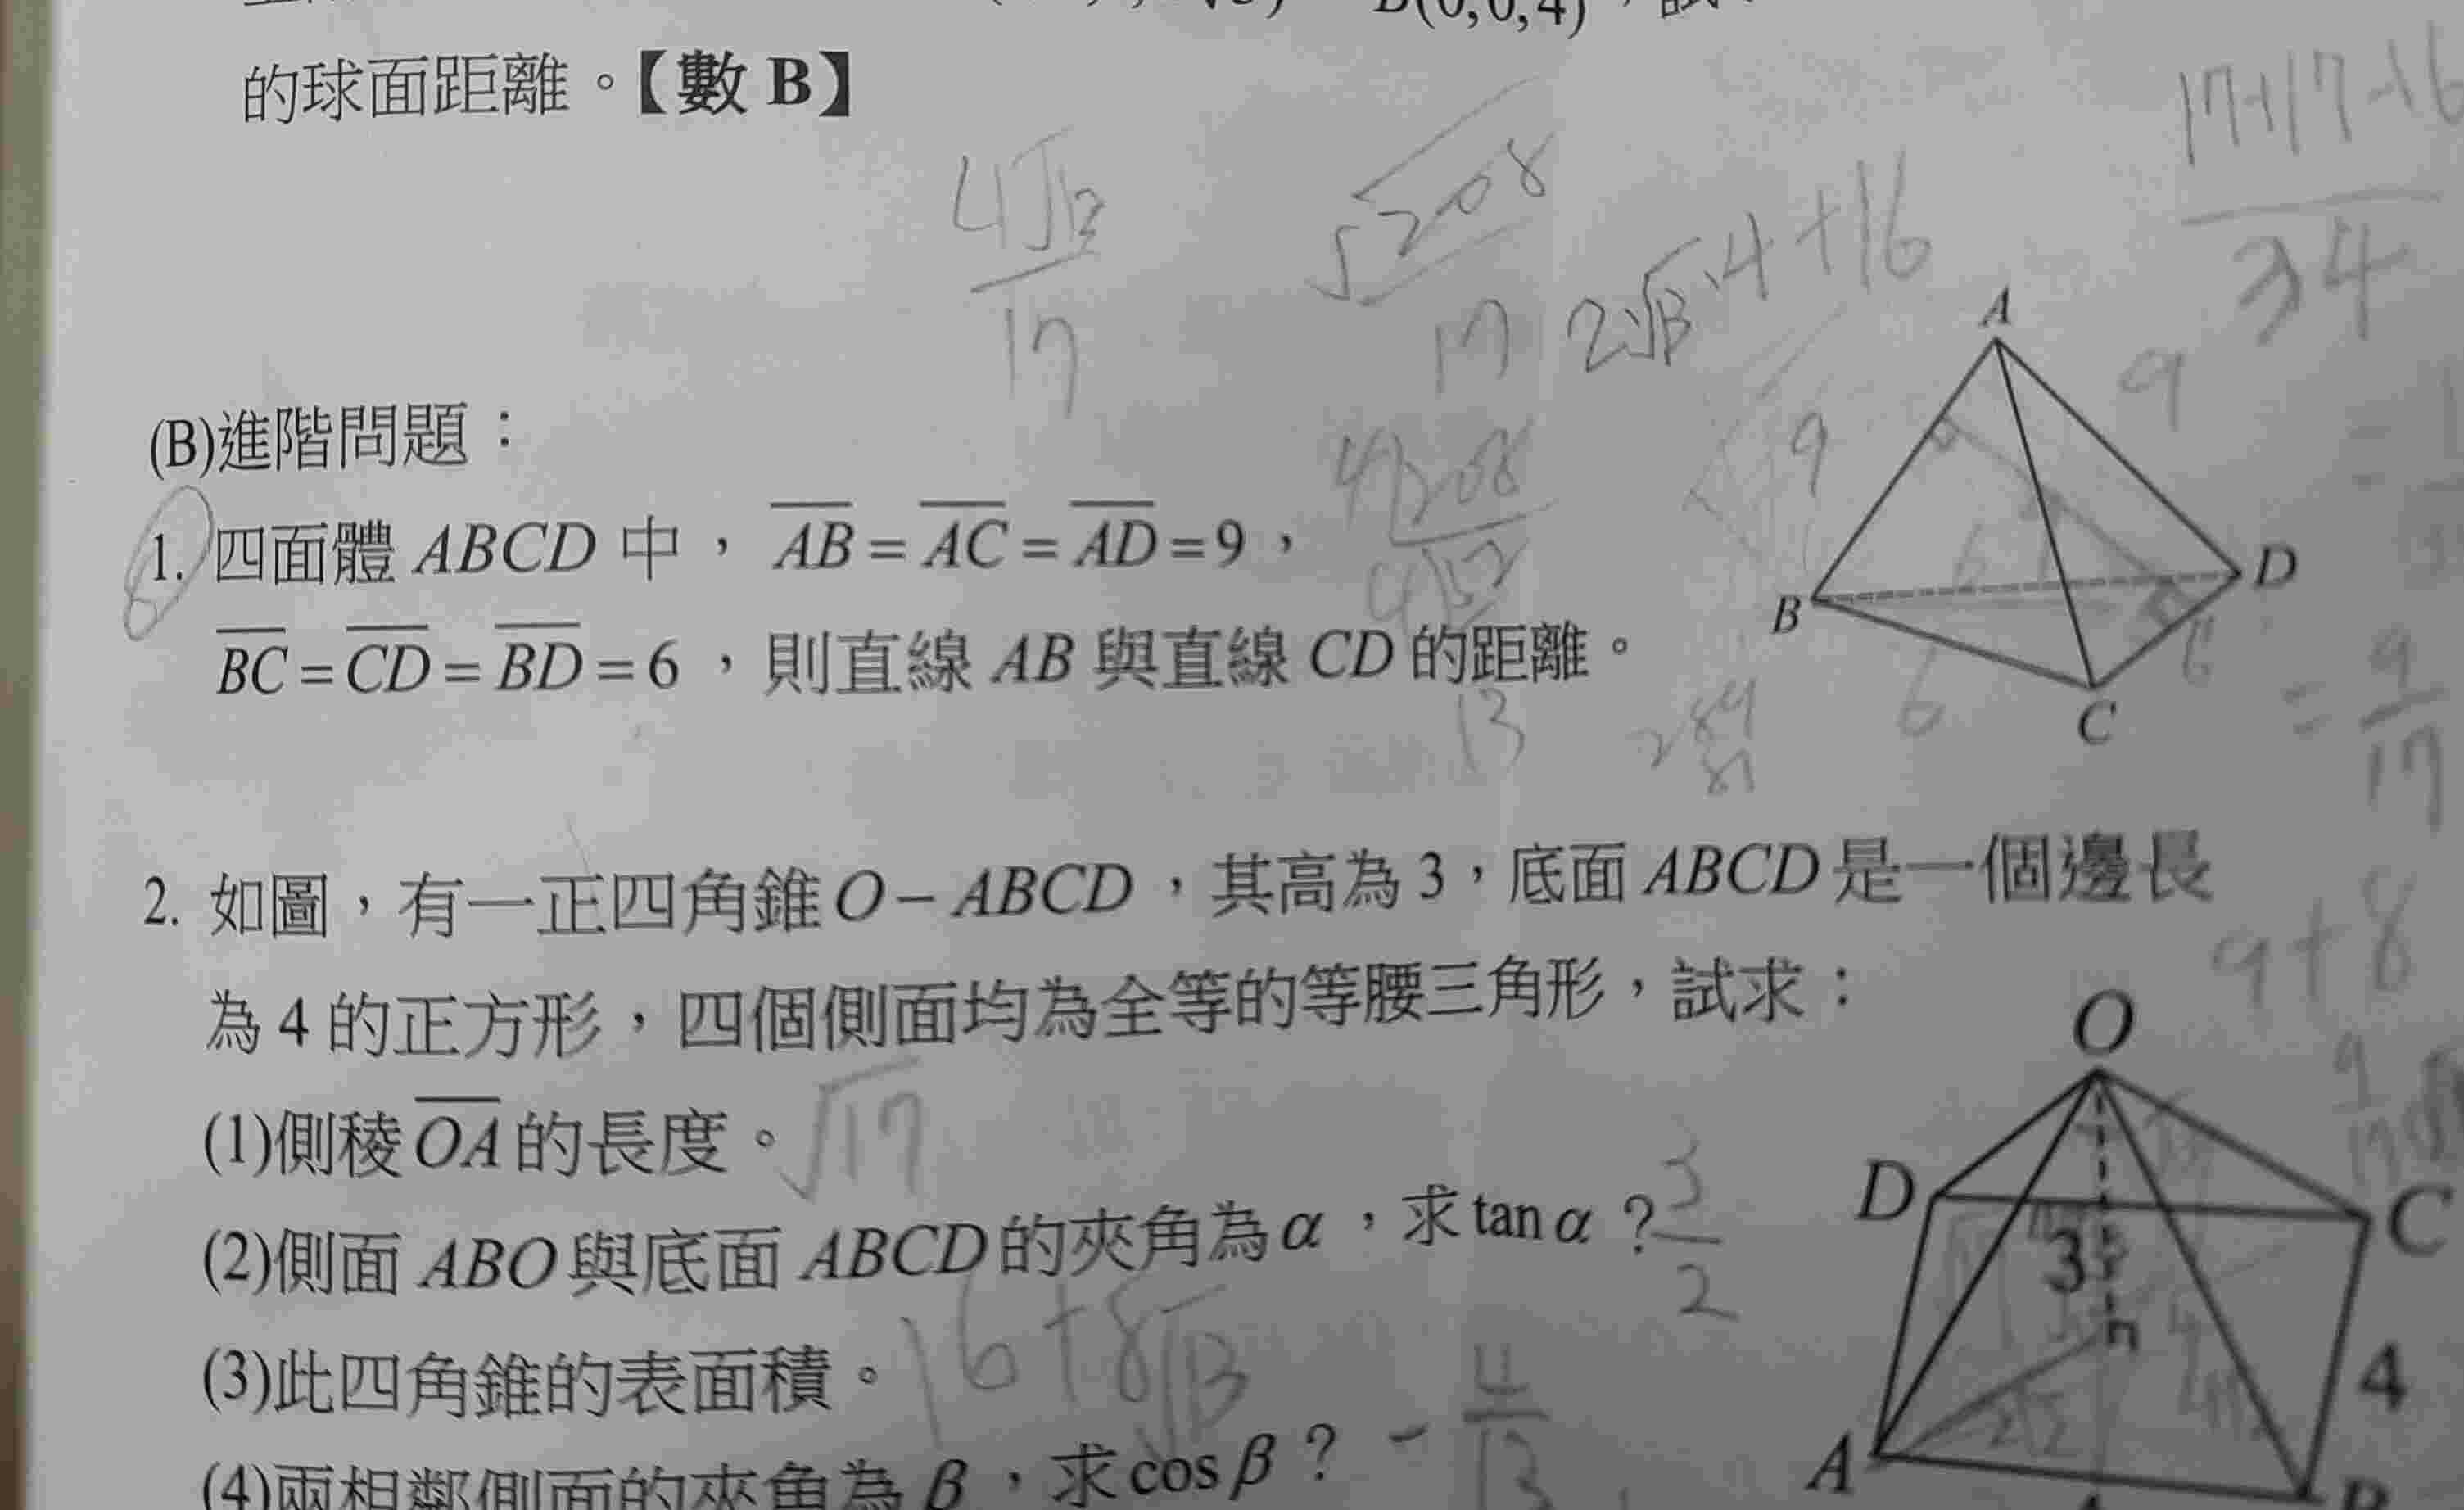 B(0,0,4)，試
的球面距離。【數 B】
4√13
17
√208
17
2√13·4+16
17+17-16
34
(B)進階問題：
4√208
4√52
13
1. 四面體 ABCD 中，AB = AC = AD = 9，
BC = CD = BD = 6，則直線 AB 與直線 CD 的距離。
A
9
9
B
D
6
6
6
C
289
81
= 9
17
2. 如圖，有一正四角錐 O – ABCD，其高為 3，底面 ABCD 是一個邊長
為 4 的正方形，四個側面均為全等的等腰三角形，試求：
9+8
(1)側稜 OA 的長度。√17
(2)側面 ABO 與底面 ABCD 的夾角為 α，求 tan α？3
2
(3)此四角錐的表面積。16+8√13
(4)兩相鄰側面的夾角為 β，求 cos β？ - 4
13
O
D
C
3
4
2√2
A
B